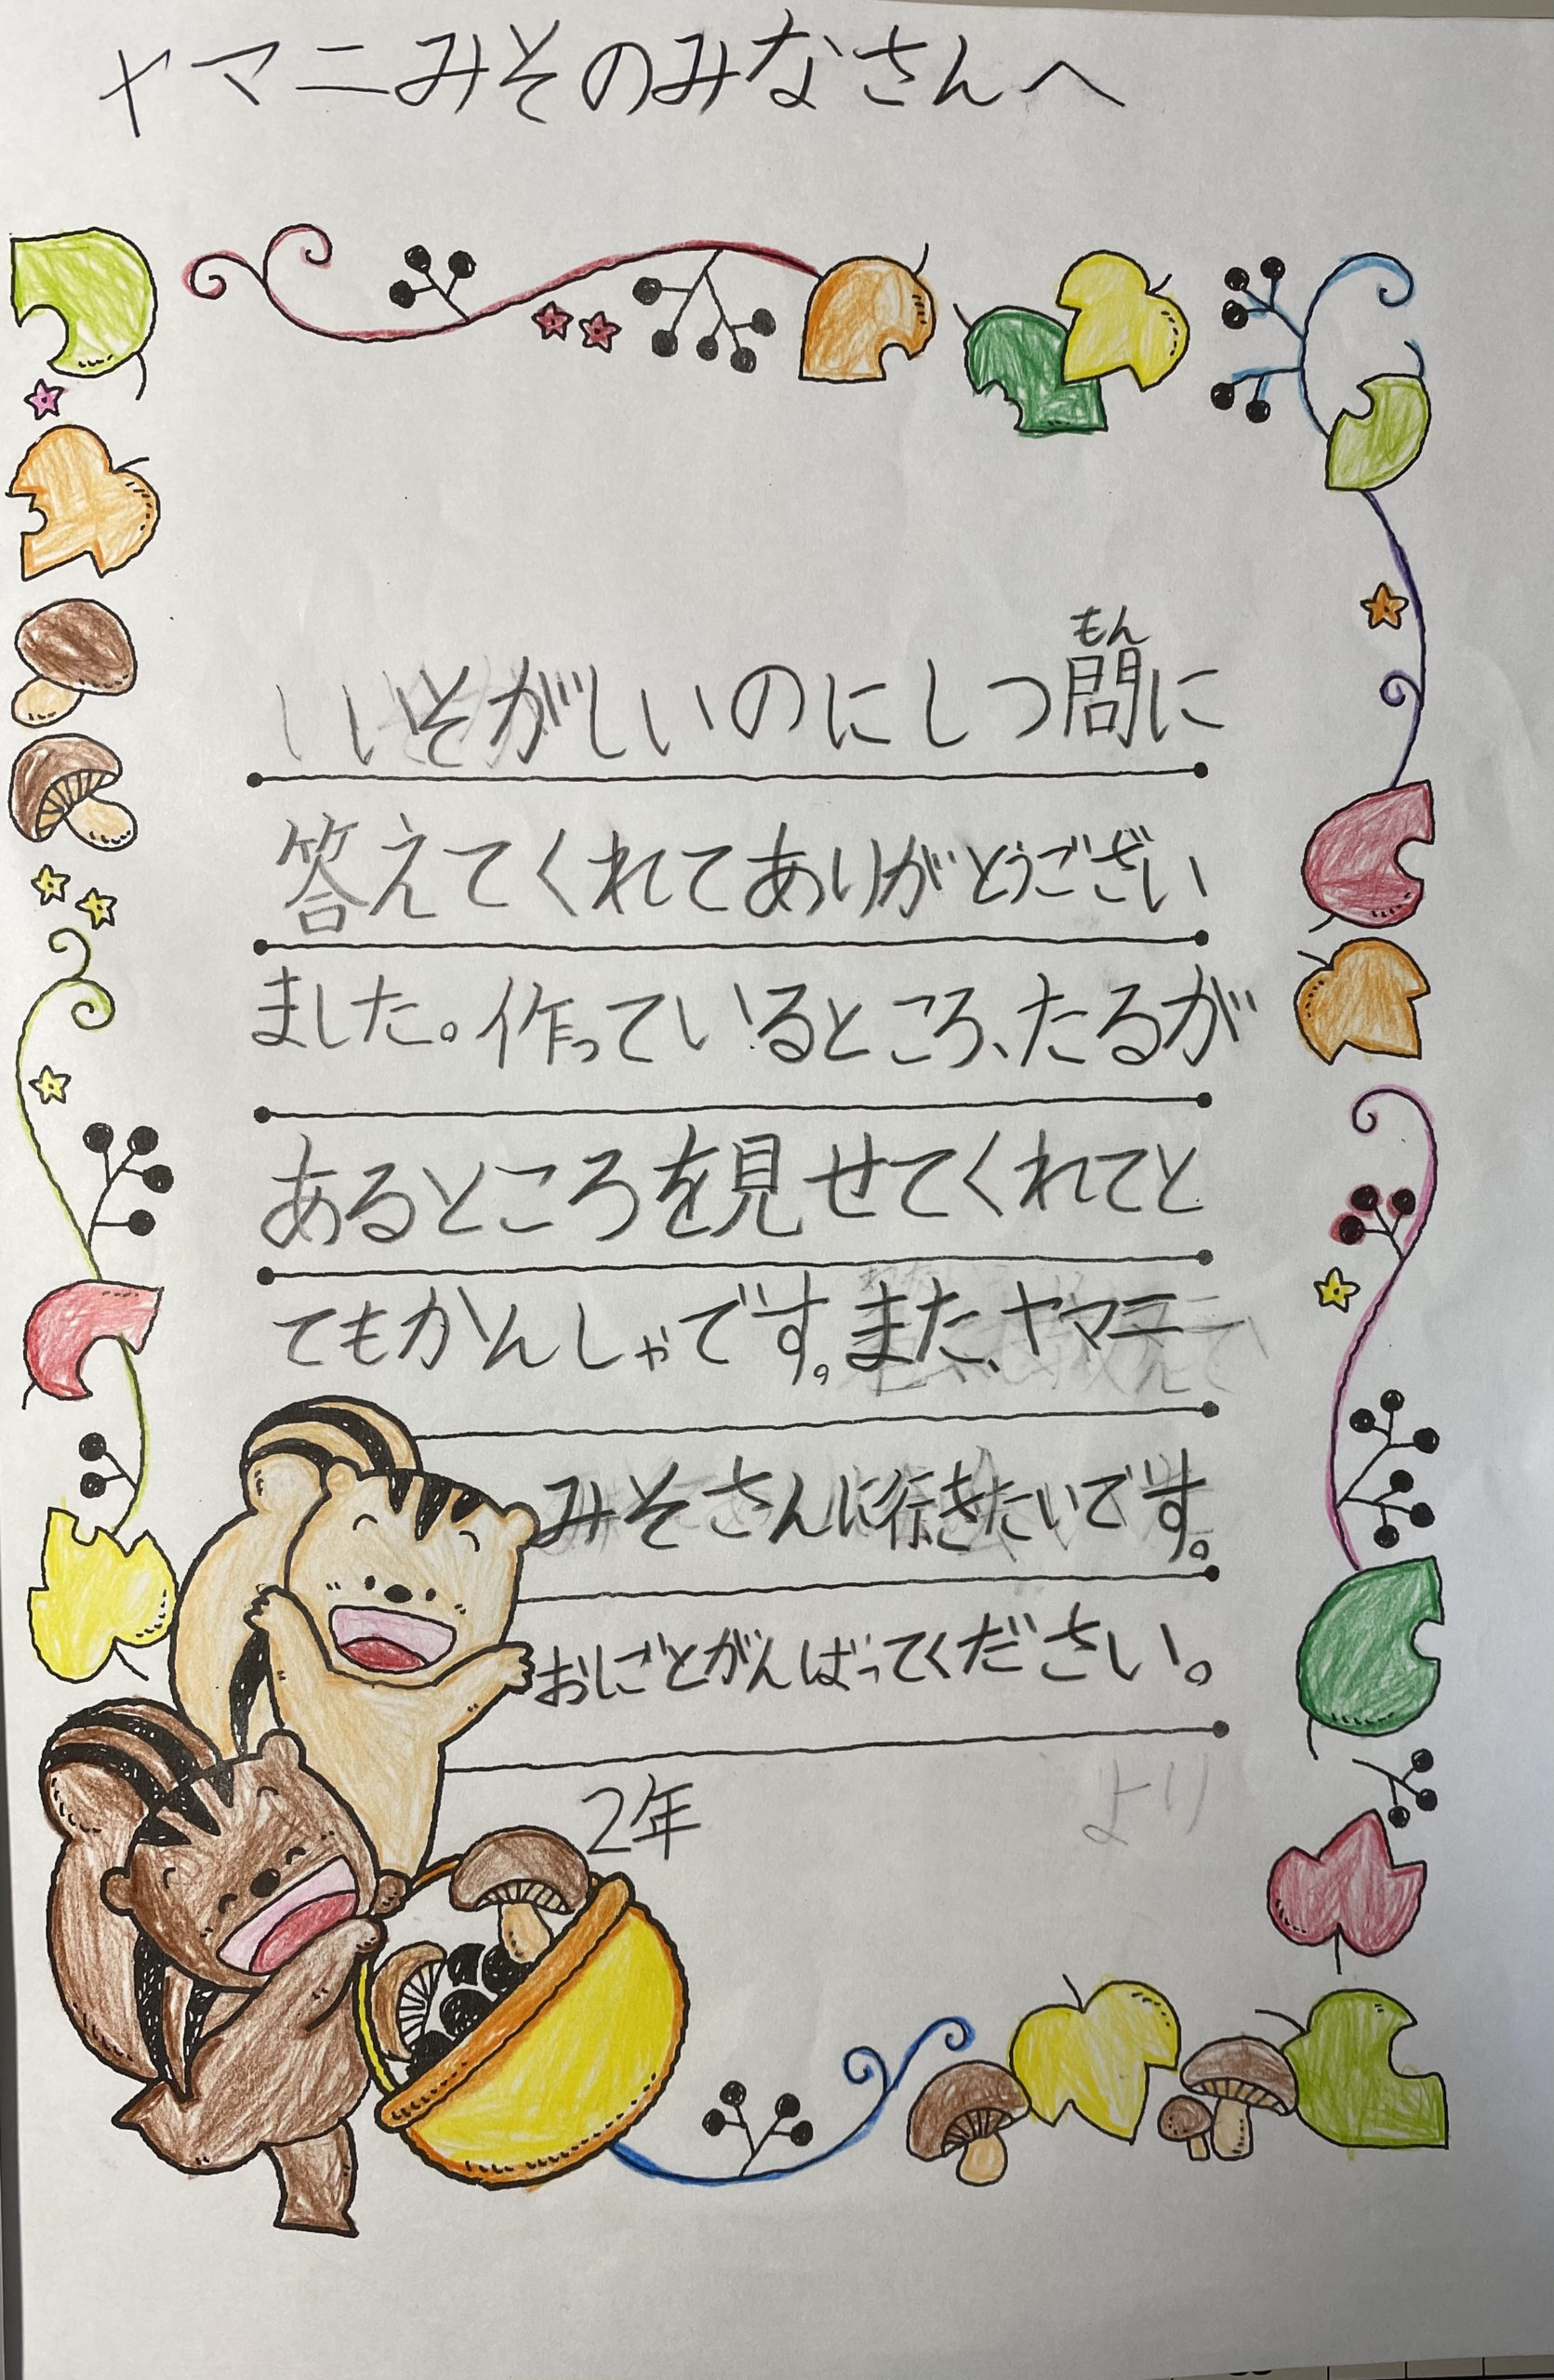 ヤマニみそのみなさんへ
いそがしいのにしつ問に
もん
答えてくれてありがとうござい
ました。作っているところ、たるが
あるところを見せてくれてと
てもかんしゃです。また、ヤマニ
みそさんに行きたいです。
おしごとがんばってください。
2年 より